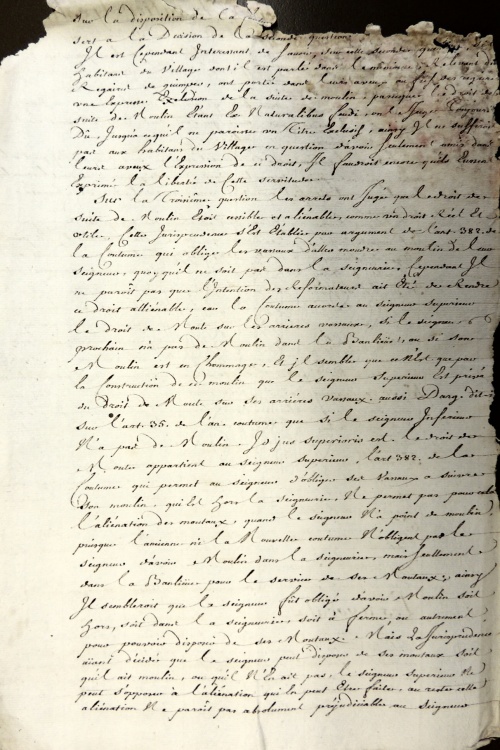 sur la disposition de la
sert a la Decision de la seconde question
Il est Cependant Interessant de savoir, sur cette
habitans du Village dont il est parlé dans le memoire, relevant du
Regaire de quimper, ont porté dans leurs aveux
une Expresse Extention de la suite de moulin; parceque le droit de
suite de Moulin Etant Ex Naturalibus feudi, est Jugé toujours
Dû, Jusqua cequ'il en paroisse un Titre Exclusif, ainsy Il ne suffiroit
pas aux habitans du Village en question d'avoir seulement omis dans
leurs aveux l'Expression de ce droit, Il faudroit encore qu'ils Eussent
Exprimé la liberté de Cette servitude
Sur la Troisieme question les arrets ont Jugé que le droit de
suite de Moulin Etoit cessible et alienable, comme un droit Réel Et
utile, Cette Jurisprudence s'Est Etablie par argument de l'art. 382. de
la Coutume qui oblige les vassaux d'aller moudre au moulin de leur
seigneur, quoy qu'il ne soit pas dans la seigneurie, Cependant Il
ne paroît pas que l'Intention des Reformateurs ait Eté de Rendre
ce droit alliénable, car la Coutume accorde au seigneur superieur
le droit de Moute sur les arrieres vassaux, si le seigneur
prochain n'a pas de Moulin dans la Banlieuë, ou si son
Moulin est en Chommage, Et il semble que ce N'est que par
la Construction de ce moulin que le seigneur superieur Est privé
du droit de Moute sur ses arrieres vassaux. aussi Darg. dit
sur l'art. 35. de l'an. coutume que si le seigneur Inferieur
N'a pas de Moulin Id jus superioris est. le droit de
Moute appartient au seigneur superieur, l'art 382. de la
Coutume qui permet au seigneur d'obliger ses Vassaux a suivre
son moulin, qu'il est hors la seigneurie, Ne permet pas pour cela
l'aliénation des moutaux, quand le seigneur N'a point de moulin
puisque l'ancienne ni la Nouvelle coutume N'obligent pas le
seigneur d'avoir Moulin dans la seigneurie, mais seullement
dans la Banlieuë pour le service de ses Moutaux; ainsy
Il sembleroit que le seigneur fût obligé d'avoir Moulin soit
hors, soit dans la seigneurie, soit à ferme, ou autrement,
pour pouvoir disposer de ses Moutaux. Mais La Jurisprudence
aiant décidé que le seigneur peut disposer de ses moutaux soit
qu'il ait moulin, ou qu'il N'en ait pas, le seigneur superieur Ne
peut s'opposer à l'aliénation qui en peut Etre faite, au reste cette
aliénation Ne paroît pas absolument préjudiciable au seigneur